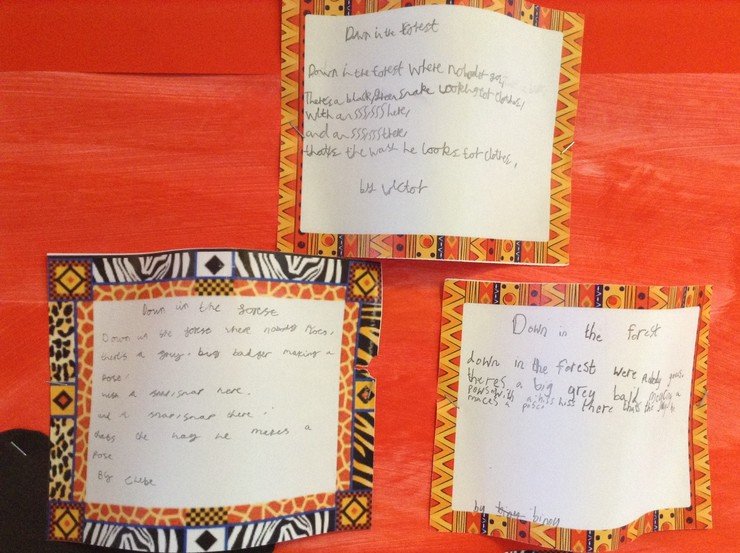 Down in the forest
Down in the forest where nobody goes
Theres a black/green snake looking for clothes,
with an ssssss here,
and an ssssss there
thats the way he looks for clothes,
by victor
Down in the forest
Down in the forest where nobody goes,
theres a grey, big badger making a
pose,
with a snap, snap here,
and a snap, snap there,
thats the way he makes a
pose
By
Down in the forest
down in the forest were nobody goes.
theres a big grey a
with a hiss hiss there thats the
maces a
by binny